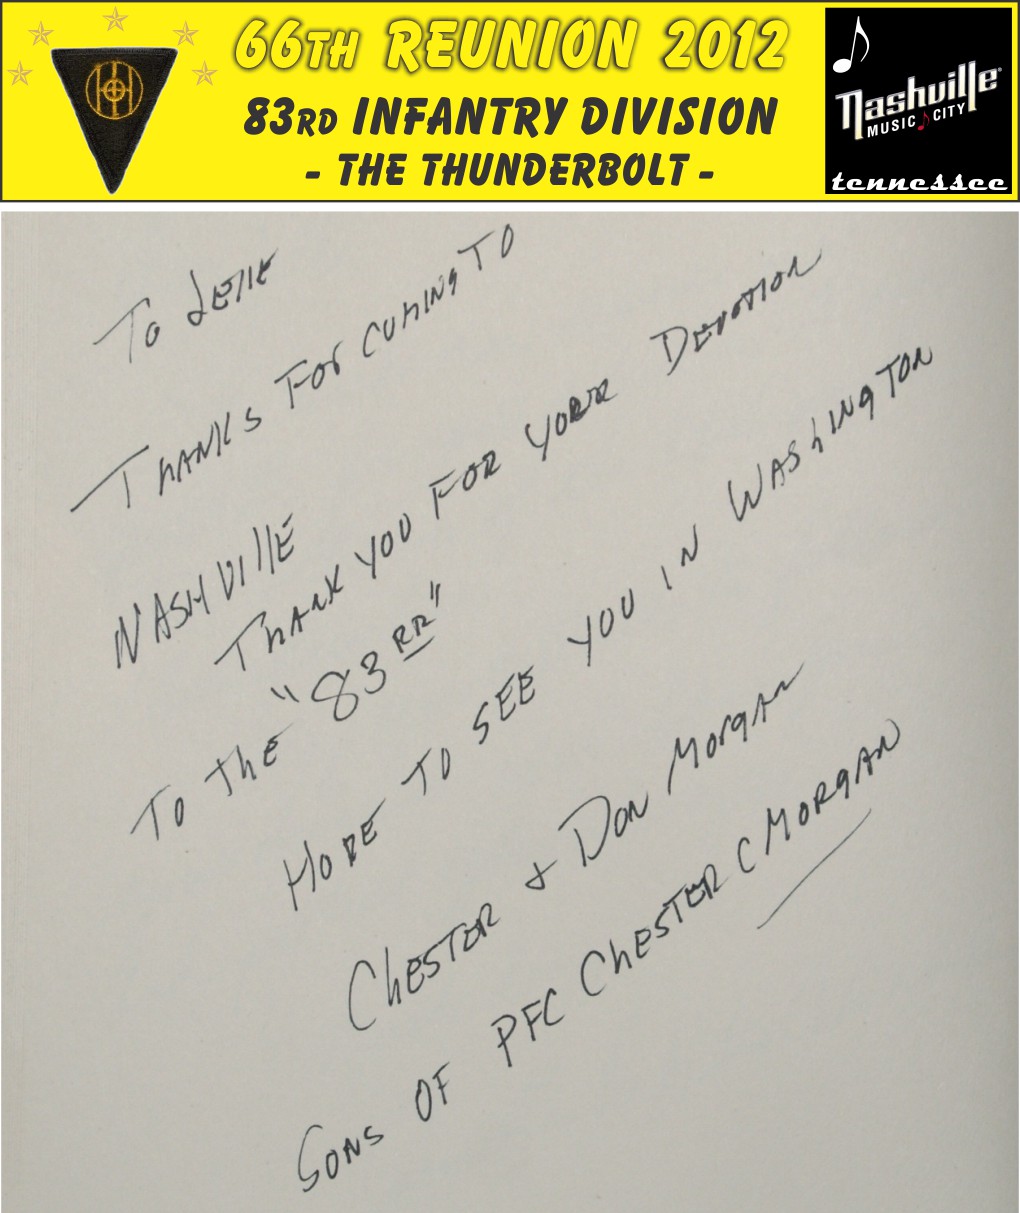 66TH REUNION 2012
83RD INFANTRY DIVISION
- THE THUNDERBOLT -
Nashville
MUSIC CITY
tennessee
To
THANKS FOR COMING TO
NASHVIllE
THANK YOU FOR YOUR DEVOTION
TO THE "83RD"
HOPE TO SEE YOU IN WASHINGTON
CHESTER + DON MORGAN
SONS OF PFC CHESTER C MORGAN